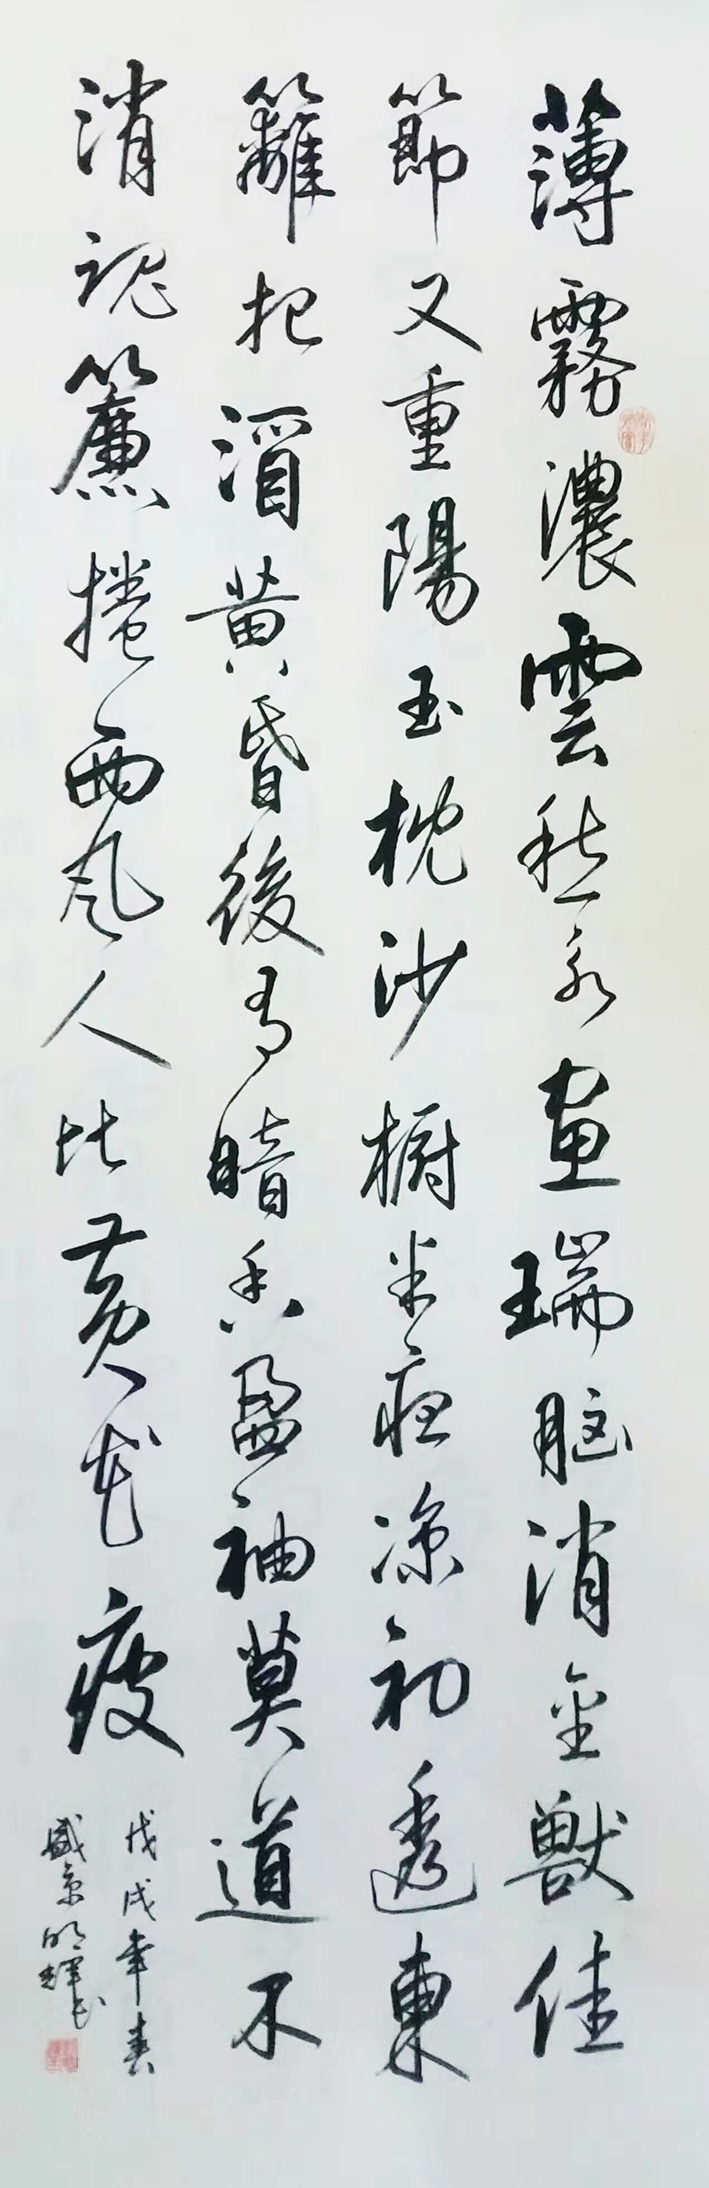 薄霧濃雲愁永画瑞脑消金獸佳
節又重陽玉枕沙橱半夜凉初透東
籬把酒黄昏後有暗香盈袖莫道不
消魂簾捲西风人比黄花瘦
戊戌年春
盛京明輝书